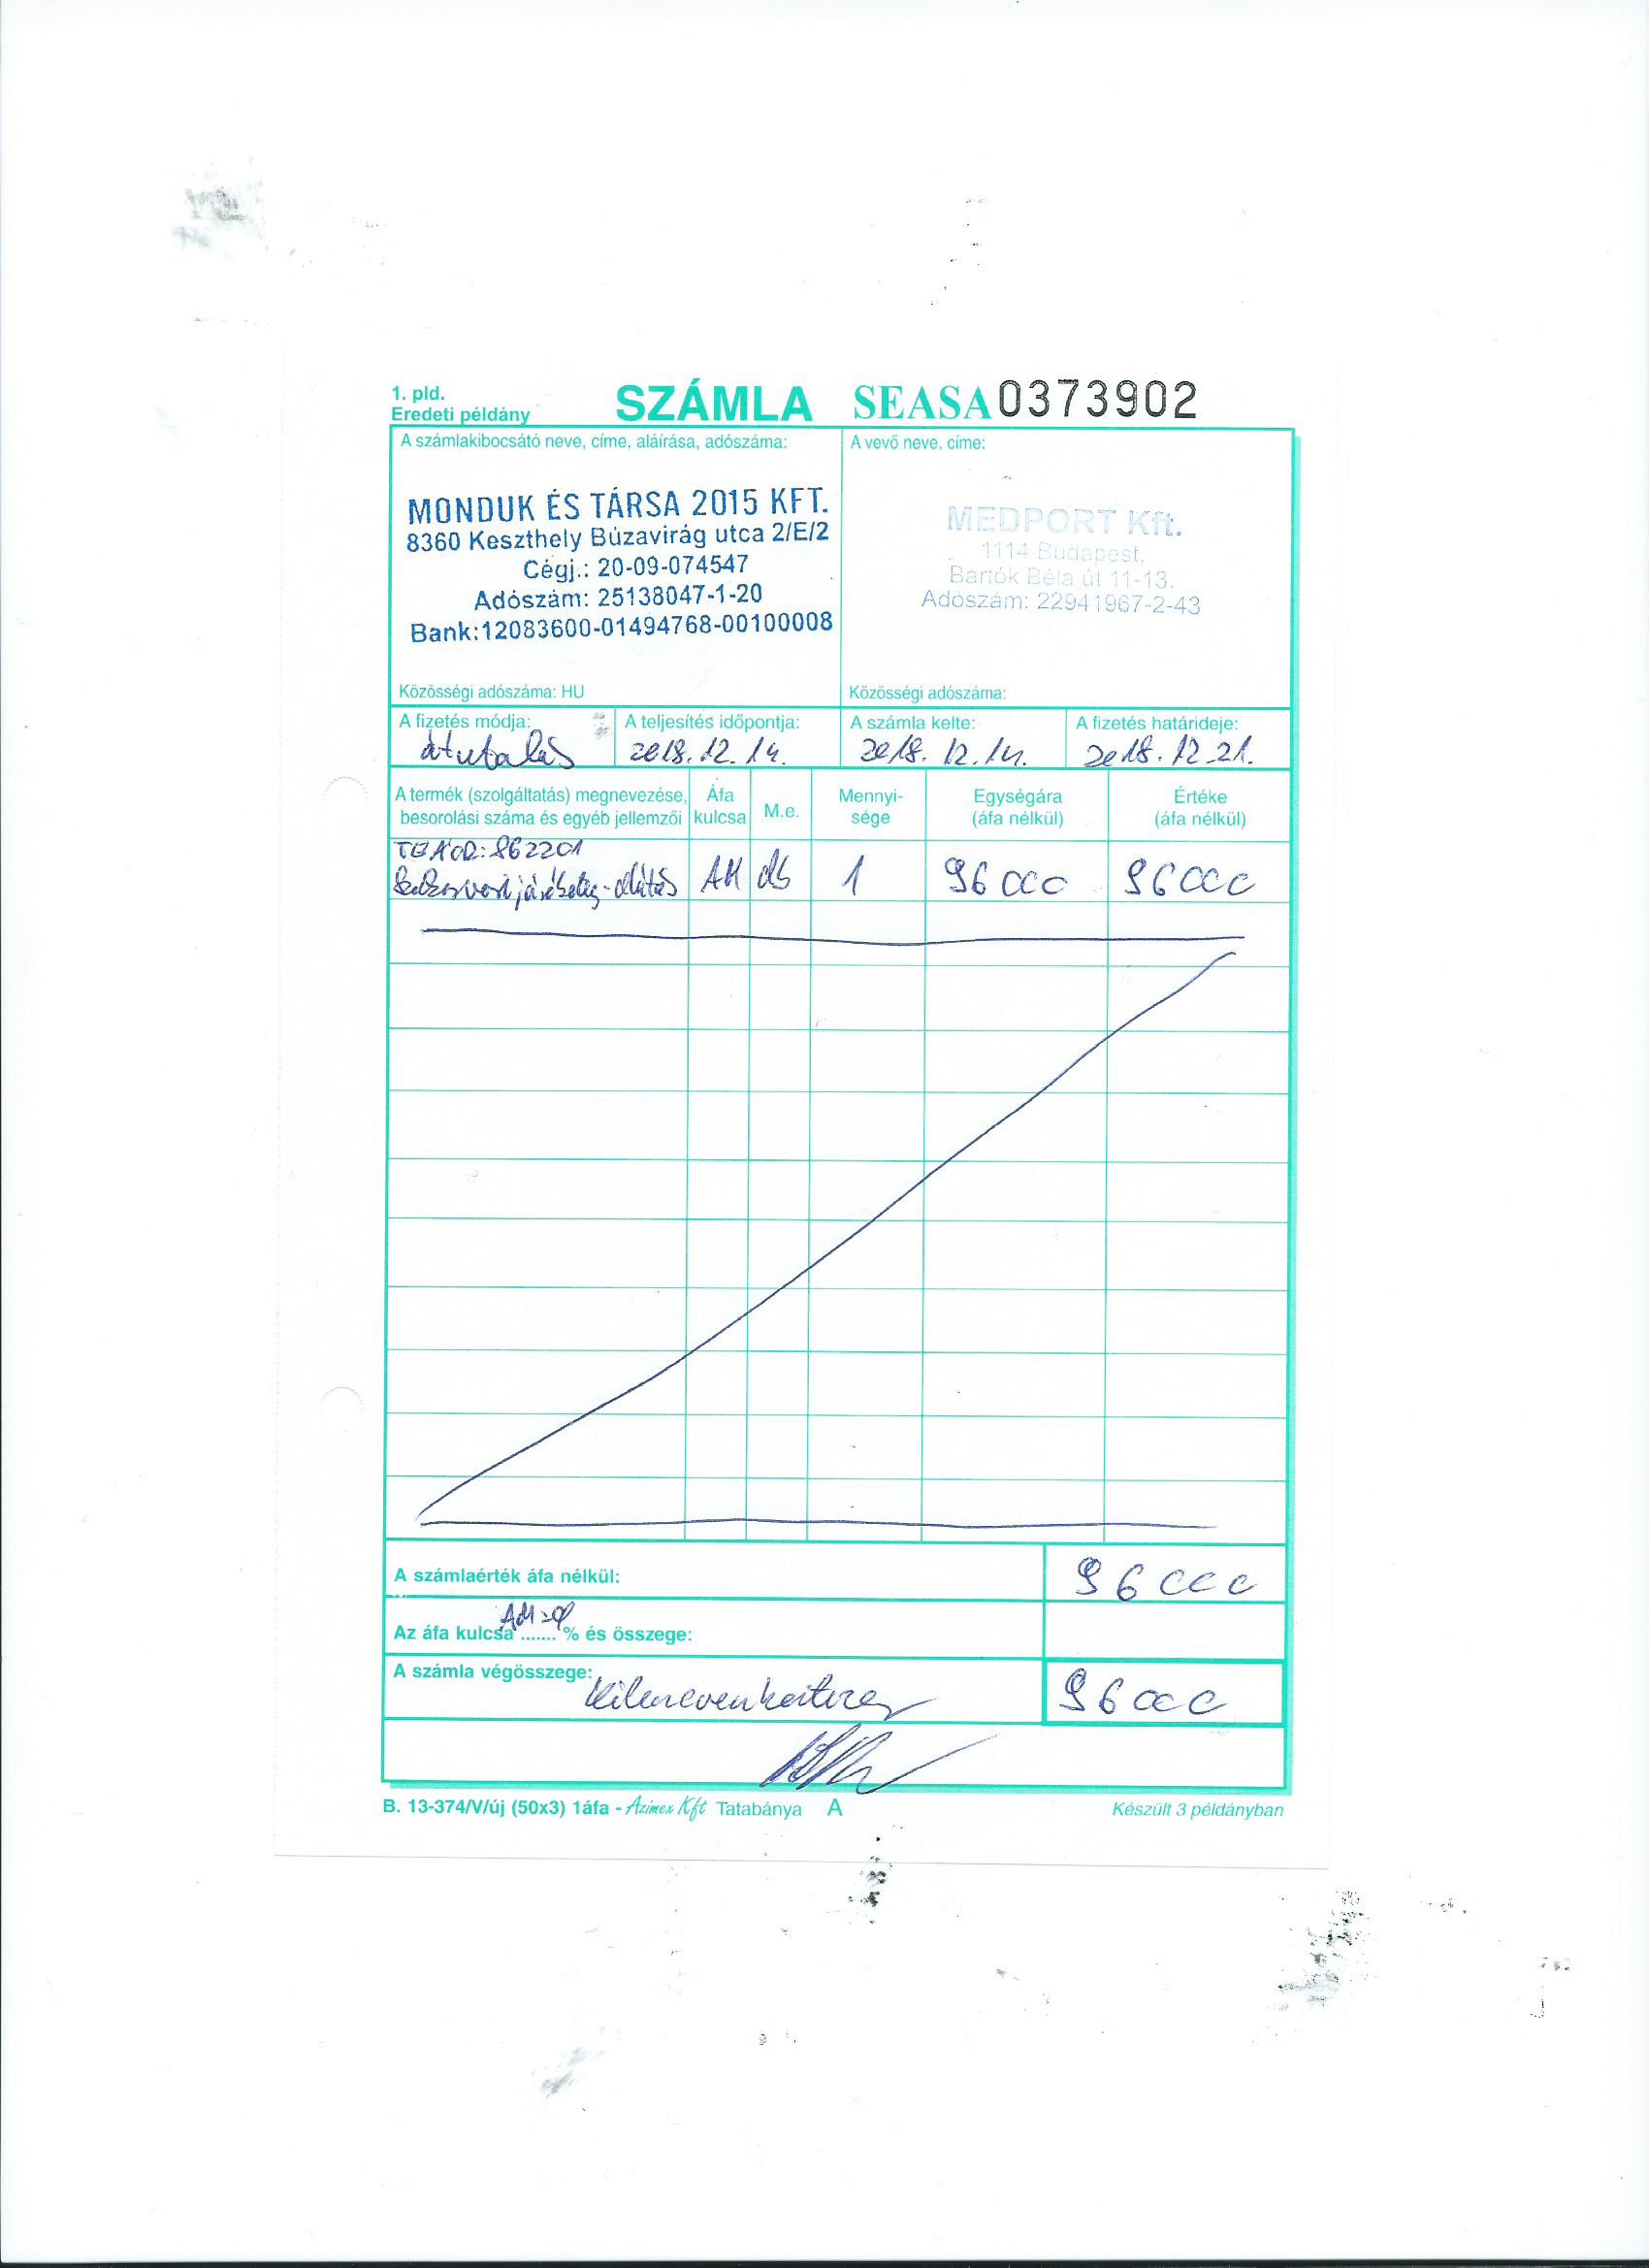 1. pld.
Eredeti példány
SZÁMLA SEASA 0373902
A számlakibocsátó neve, címe, aláírása, adószáma:
MONDUK ÉS TÁRSA 2015 KFT.
8360 Keszthely Búzavirág utca 2/E/2
Cégj.: 20-09-074547
Adószám: 25138047-1-20
Bank:12083600-01494768-00100008
Közösségi adószáma: HU
A vevő neve, címe:
MEDPORT Kft.
1114 Budapest,
Bartók Béla út 11-13.
Adószám: 22941967-2-43
Közösségi adószáma:
A fizetés módja: A teljesítés időpontja: A számla kelte: A fizetés határideje:
átutalás 2018.12.14. 2018.12.14. 2018.12.21.
A termék (szolgáltatás) megnevezése, besorolási száma és egyéb jellemzői Áfa kulcsa M.e. Mennyi-sége Egységára (áfa nélkül) Értéke (áfa nélkül)
TEÁOR: 862201
Szakorvosi járóbeteg-ellátás AM db 1 96 000 96 000
A számlaérték áfa nélkül: 96 000
Az áfa kulcsa AM ....... % és összege:
A számla végösszege: 96 000
B. 13-374/V/új (50x3) 1áfa - Azimex Kft Tatabánya A Készült 3 példányban